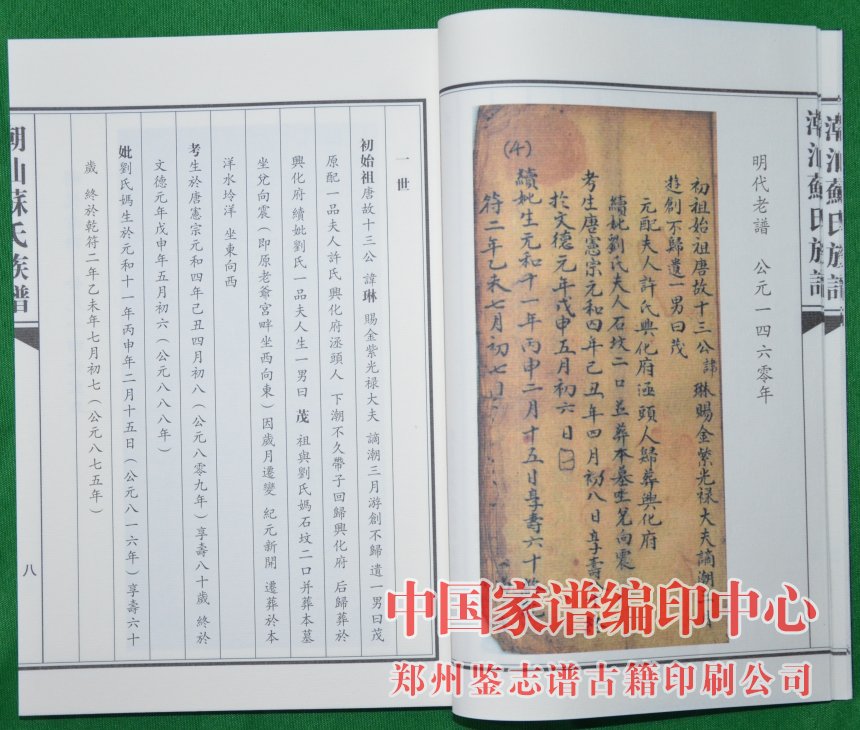 潮汕蘇氏族譜
潮汕蘇氏族譜
明代老譜 公元一四六零年
初祖始祖唐故十三公諱琳賜金紫光禄大夫謫潮
遊創不歸遺一男曰茂
元配夫人許氏興化府涵頭人歸葬興化府
續妣劉氏夫人石坟二口並葬本墓坐兑向震
考生唐憲宗元和四年己丑年四月初八日享壽
於文德元年戊申五月初六日
(4)
續妣生元和十一年丙申二月十五日享壽六十
符二年乙未七月初七日
一世
初始祖唐故十三公 諱琳 賜金紫光禄大夫 謫潮三月游創不歸 遺一男曰茂
原配一品夫人許氏 興化府涵頭人 下潮不久帶子回歸興化府 后歸葬於
興化府 續妣劉氏一品夫人生一男曰 茂 祖與劉氏媽石坟二口并葬本墓
坐兑向震（即原老爺宮畔坐西向東）因歲月遷變 紀元新開 遷葬於本
洋水坽洋 坐東向西
考生於唐憲宗元和四年己丑四月初八（公元八零九年）享壽八十歲 終於
文德元年戊申年五月初六（公元八八八年）
妣劉氏媽生於元和十一年丙申年二月十五日（公元八一六年）享壽六十
歲 終於乾符二年乙未年七月初七（公元八七五年）
潮汕蘇氏族譜
八
中国家谱编印中心
郑州鉴志谱古籍印刷公司